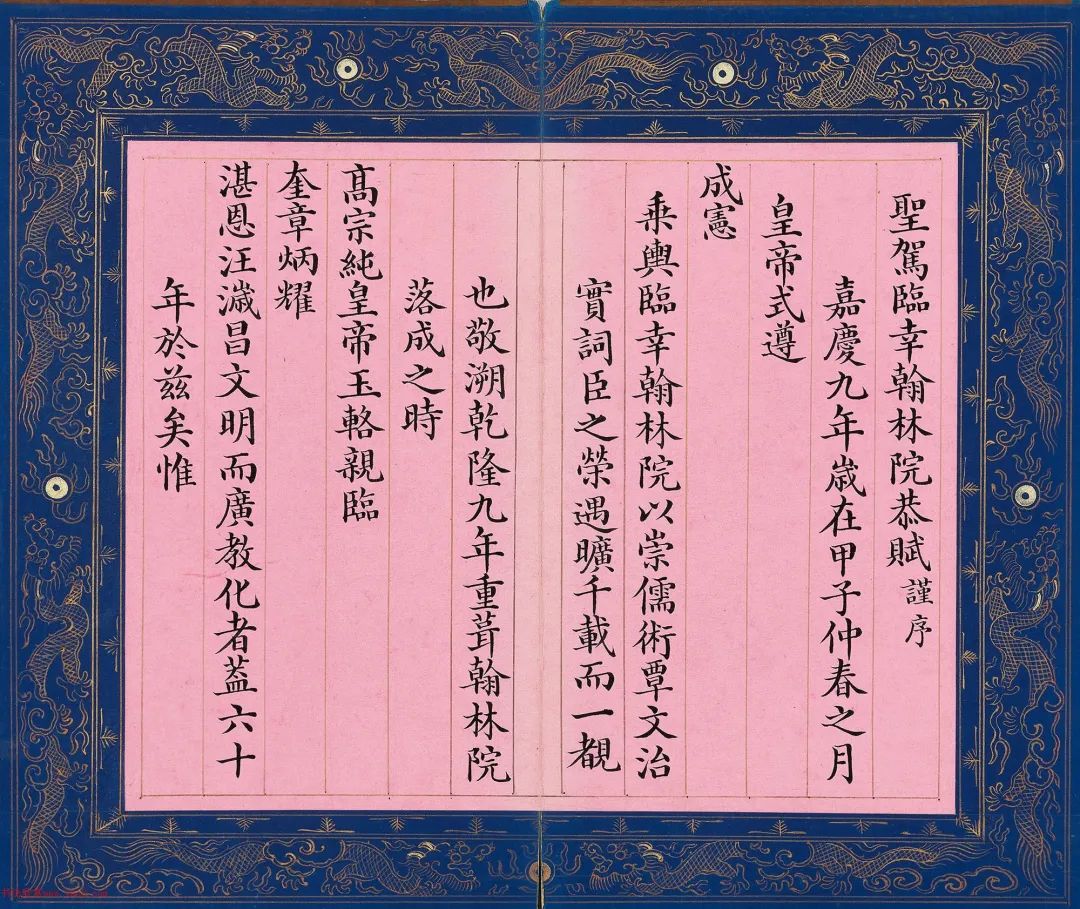 聖駕臨幸翰林院恭賦謹序
嘉慶九年歲在甲子仲春之月
皇帝式遵
成憲
乘輿臨幸翰林院以崇儒術覃文治
實詞臣之榮遇曠千載而一覩
也敬溯乾隆九年重葺翰林院
落成之時
髙宗純皇帝玉輅親臨
奎章炳耀
湛恩汪濊昌文明而廣教化者葢六十
年於茲矣惟